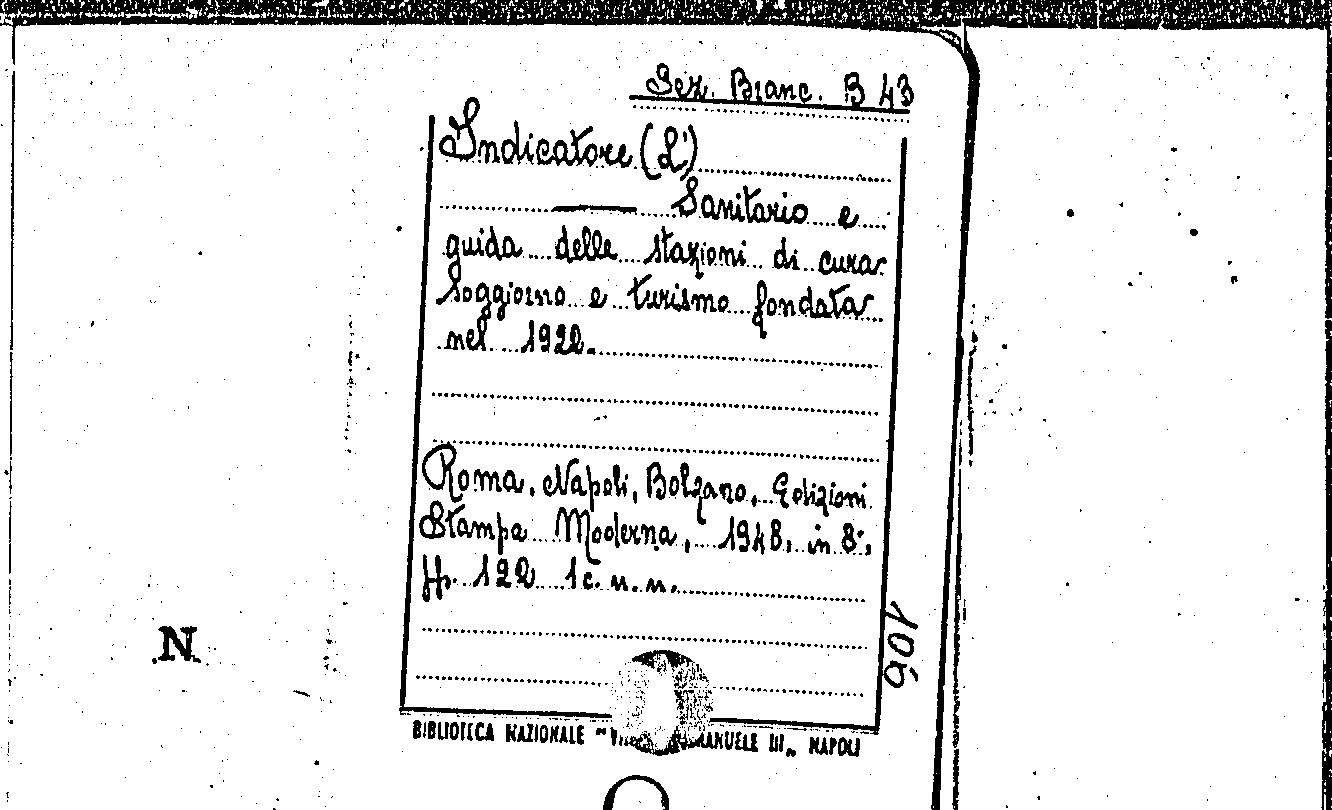 Sez. Branc. B 43
Indicatore (L')
—— Sanitario e
guida delle stazioni di cura
soggiorno e turismo fondata
nel 1922.
Roma, Napoli, Bolzano, Edizioni
Stampa Moderna, 1948, in 8°,
pp. 122 1 c. n. n.
106
N.
BIBLIOTECA NAZIONALE "VITTORIO EMANUELE III„ NAPOLI